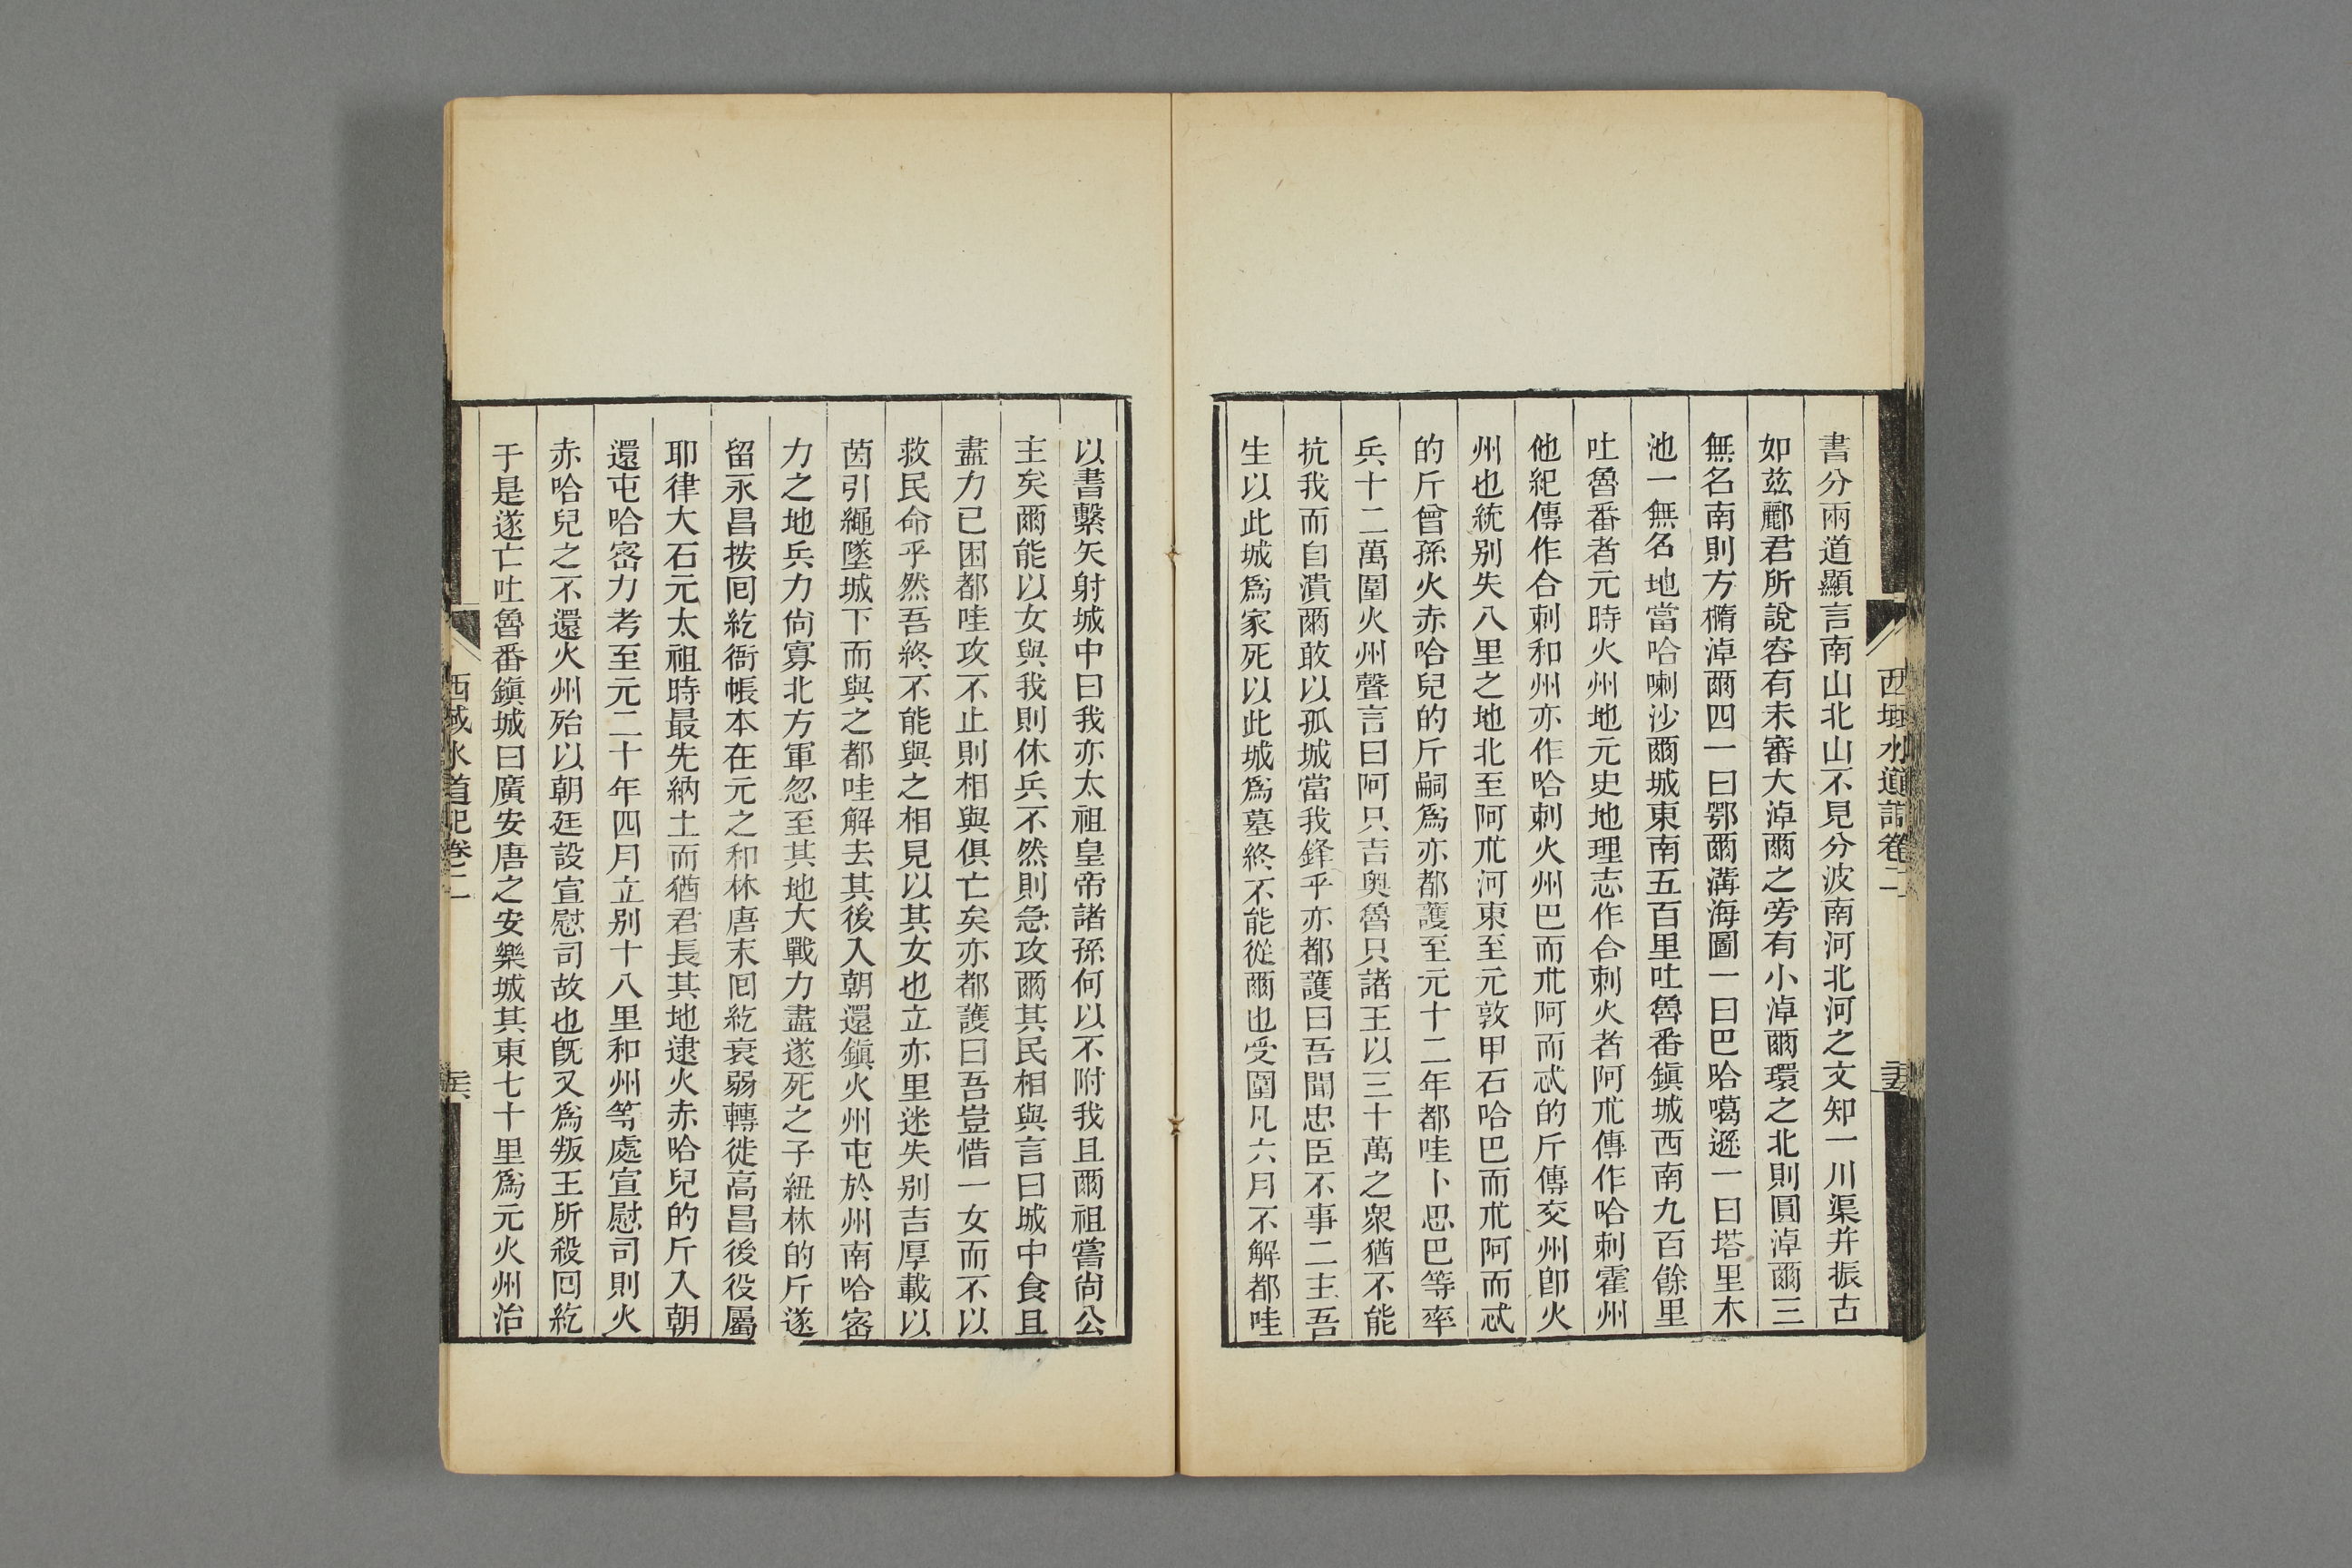 西域水道記卷二
二五
書分兩道顯言南山北山不見分波南河北河之文知一川渠幷振古
如茲酈君所說容有未審大淖爾之旁有小淖爾環之北則圓淖爾三
無名南則方橢淖爾四一曰鄂爾溝海圖一曰巴哈噶遜一曰塔里木
池一無名地當哈喇沙爾城東南五百里吐魯番鎮城西南九百餘里
吐魯番者元時火州地元史地理志作合剌火者阿朮傳作哈剌霍州
他紀傳作合剌和州亦作哈剌火州巴而朮阿而忒的斤傳交州卽火
州也統別失八里之地北至阿朮河東至元敦甲石哈巴而朮阿而忒
的斤曾孫火赤哈兒的斤嗣爲亦都護至元十二年都哇卜思巴等率
兵十二萬圍火州聲言曰阿只吉奧魯只諸王以三十萬之衆猶不能
抗我而自潰爾敢以孤城當我鋒乎亦都護曰吾聞忠臣不事二主吾
生以此城爲家死以此城爲墓終不能從爾也受圍凡六月不解都哇
以書繫矢射城中曰我亦太祖皇帝諸孫何以不附我且爾祖嘗尙公
主矣爾能以女與我則休兵不然則急攻爾其民相與言曰城中食且
盡力已困都哇攻不止則相與俱亡矣亦都護曰吾豈惜一女而不以
救民命乎然吾終不能與之相見以其女也立亦里迷失別吉厚載以
茵引繩墜城下而與之都哇解去其後入朝還鎮火州屯於州南哈密
力之地兵力尙寡北方軍忽至其地大戰力盡遂死之子紐林的斤遂
留永昌按囘紇衙帳本在元之和林唐末囘紇衰弱轉徙高昌後役屬
耶律大石元太祖時最先納土而猶君長其地逮火赤哈兒的斤入朝
還屯哈密力考至元二十年四月立別十八里和州等處宣慰司則火
赤哈兒之不還火州殆以朝廷設宣慰司故也旣又爲叛王所殺囘紇
于是遂亡吐魯番鎮城曰廣安唐之安樂城其東七十里爲元火州治
西域水道記卷二